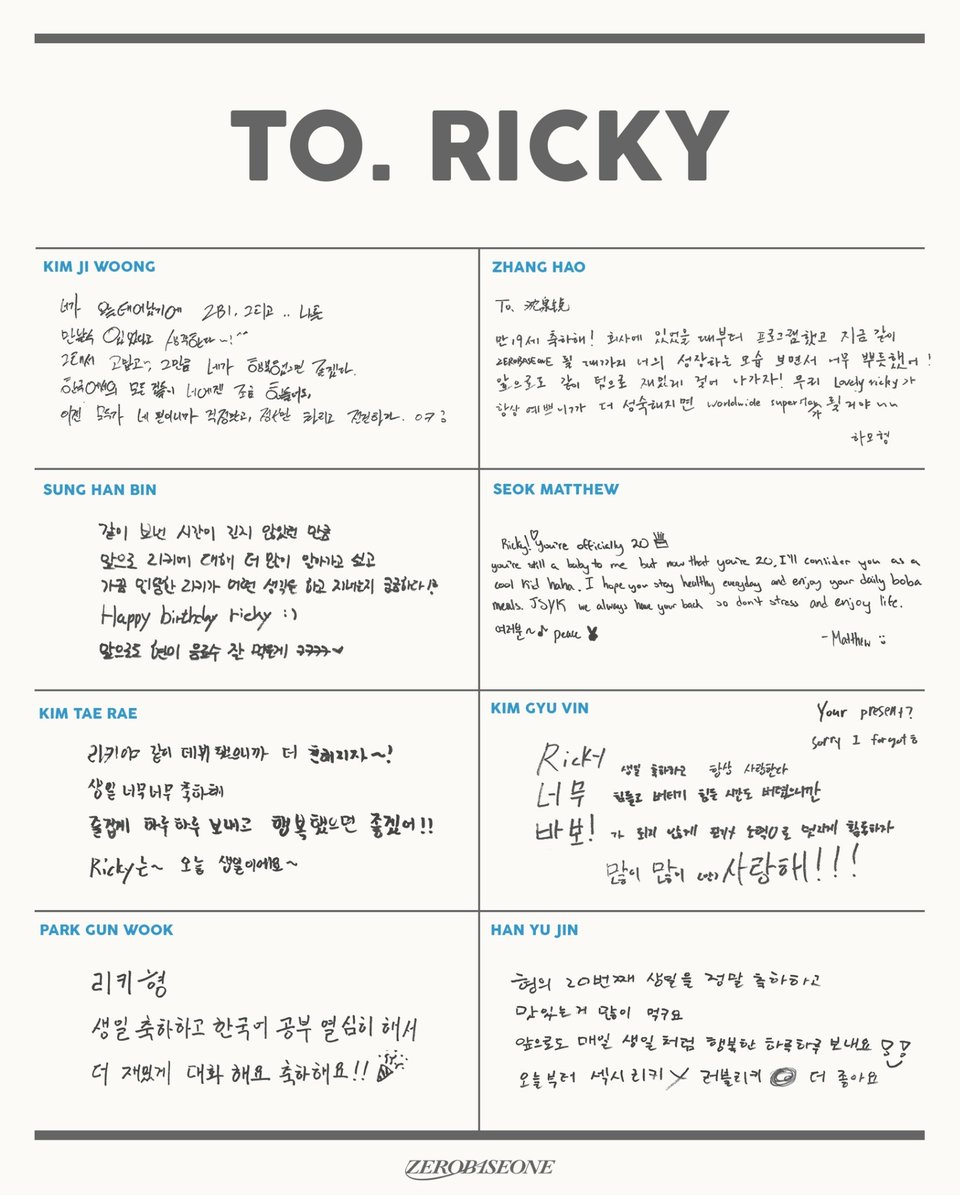 TO. RICKY
KIM JI WOONG
네가 오늘 태어났기에 ZB1, 그리고.. 나도
만날 수 있었다고 생각한다~!^^
그래서 고맙고, 그만큼 네가 행복했으면 좋겠다.
한국에서의 모든 것들이 너에겐 조금 힘들어도,
이젠 모두가 네 편이니까 걱정말고,
ZHANG HAO
To. 沈泉锐
만19세 축하해! 회사에 있었을 때부터 프로그램했고 지금 같이
ZEROBASEONE 될 때까지 너의 성장하는 모습 보면서 너무 뿌듯했어!
앞으로도 같이 팀으로 재밌게 걸어 나가자! 우리 Lovely ricky가
항상 예쁘니까 더 성숙해지면 worldwide superstar가 될거야 ㅆㅆ
하오형
SUNG HAN BIN
같이 보낸 시간이 긴지 않았던 만큼
앞으로 리키에 대해 더 많이 알아가고 싶고
가끔 덤덤한 리키가 어떤 생각을 하고 지내는지 궁금하다!?
Happy birthday ricky :)
앞으로도 형이 음료수 잔 먹을게 ㅋㅋㅋㅋ
SEOK MATTHEW
Ricky! You're officially 20
you're still a baby to me but now that you're 20, I'll consider you as a
cool kid haha. I hope you stay healthy everyday and enjoy your daily boba
meals. JSYK we always have your back so don't stress and enjoy life.
여러분~♪ peace
-Matthew :)
KIM TAE RAE
리키야 같이 데뷔했으니까 더 친해지자~!
생일 너무너무 축하해
즐겁게 하루하루 보내고 행복했으면 좋겠어!!
Ricky는~ 오늘 생일이에요~
KIM GYU VIN
Your present?
Sorry I forgot
Ricky 생일 축하하고 항상 사랑한다
너무 힘들고 버티기 힘든 시간도 버텼으니깐
바보! 가 되지 않게 노력으로 멋지게 활동하자
많이 많이 사랑해!!!
PARK GUN WOOK
리키형
생일 축하하고 한국어 공부 열심히 해서
더 재밌게 대화 해요 축하해요!!
HAN YU JIN
형의 20번째 생일을 정말 축하하고
맛있는거 많이 먹구요
앞으로도 매일 생일처럼 행복한 하루하루 보내요
오늘부터 섹시리키 X 러블리키 O 더 좋아요
ZEROBASEONE